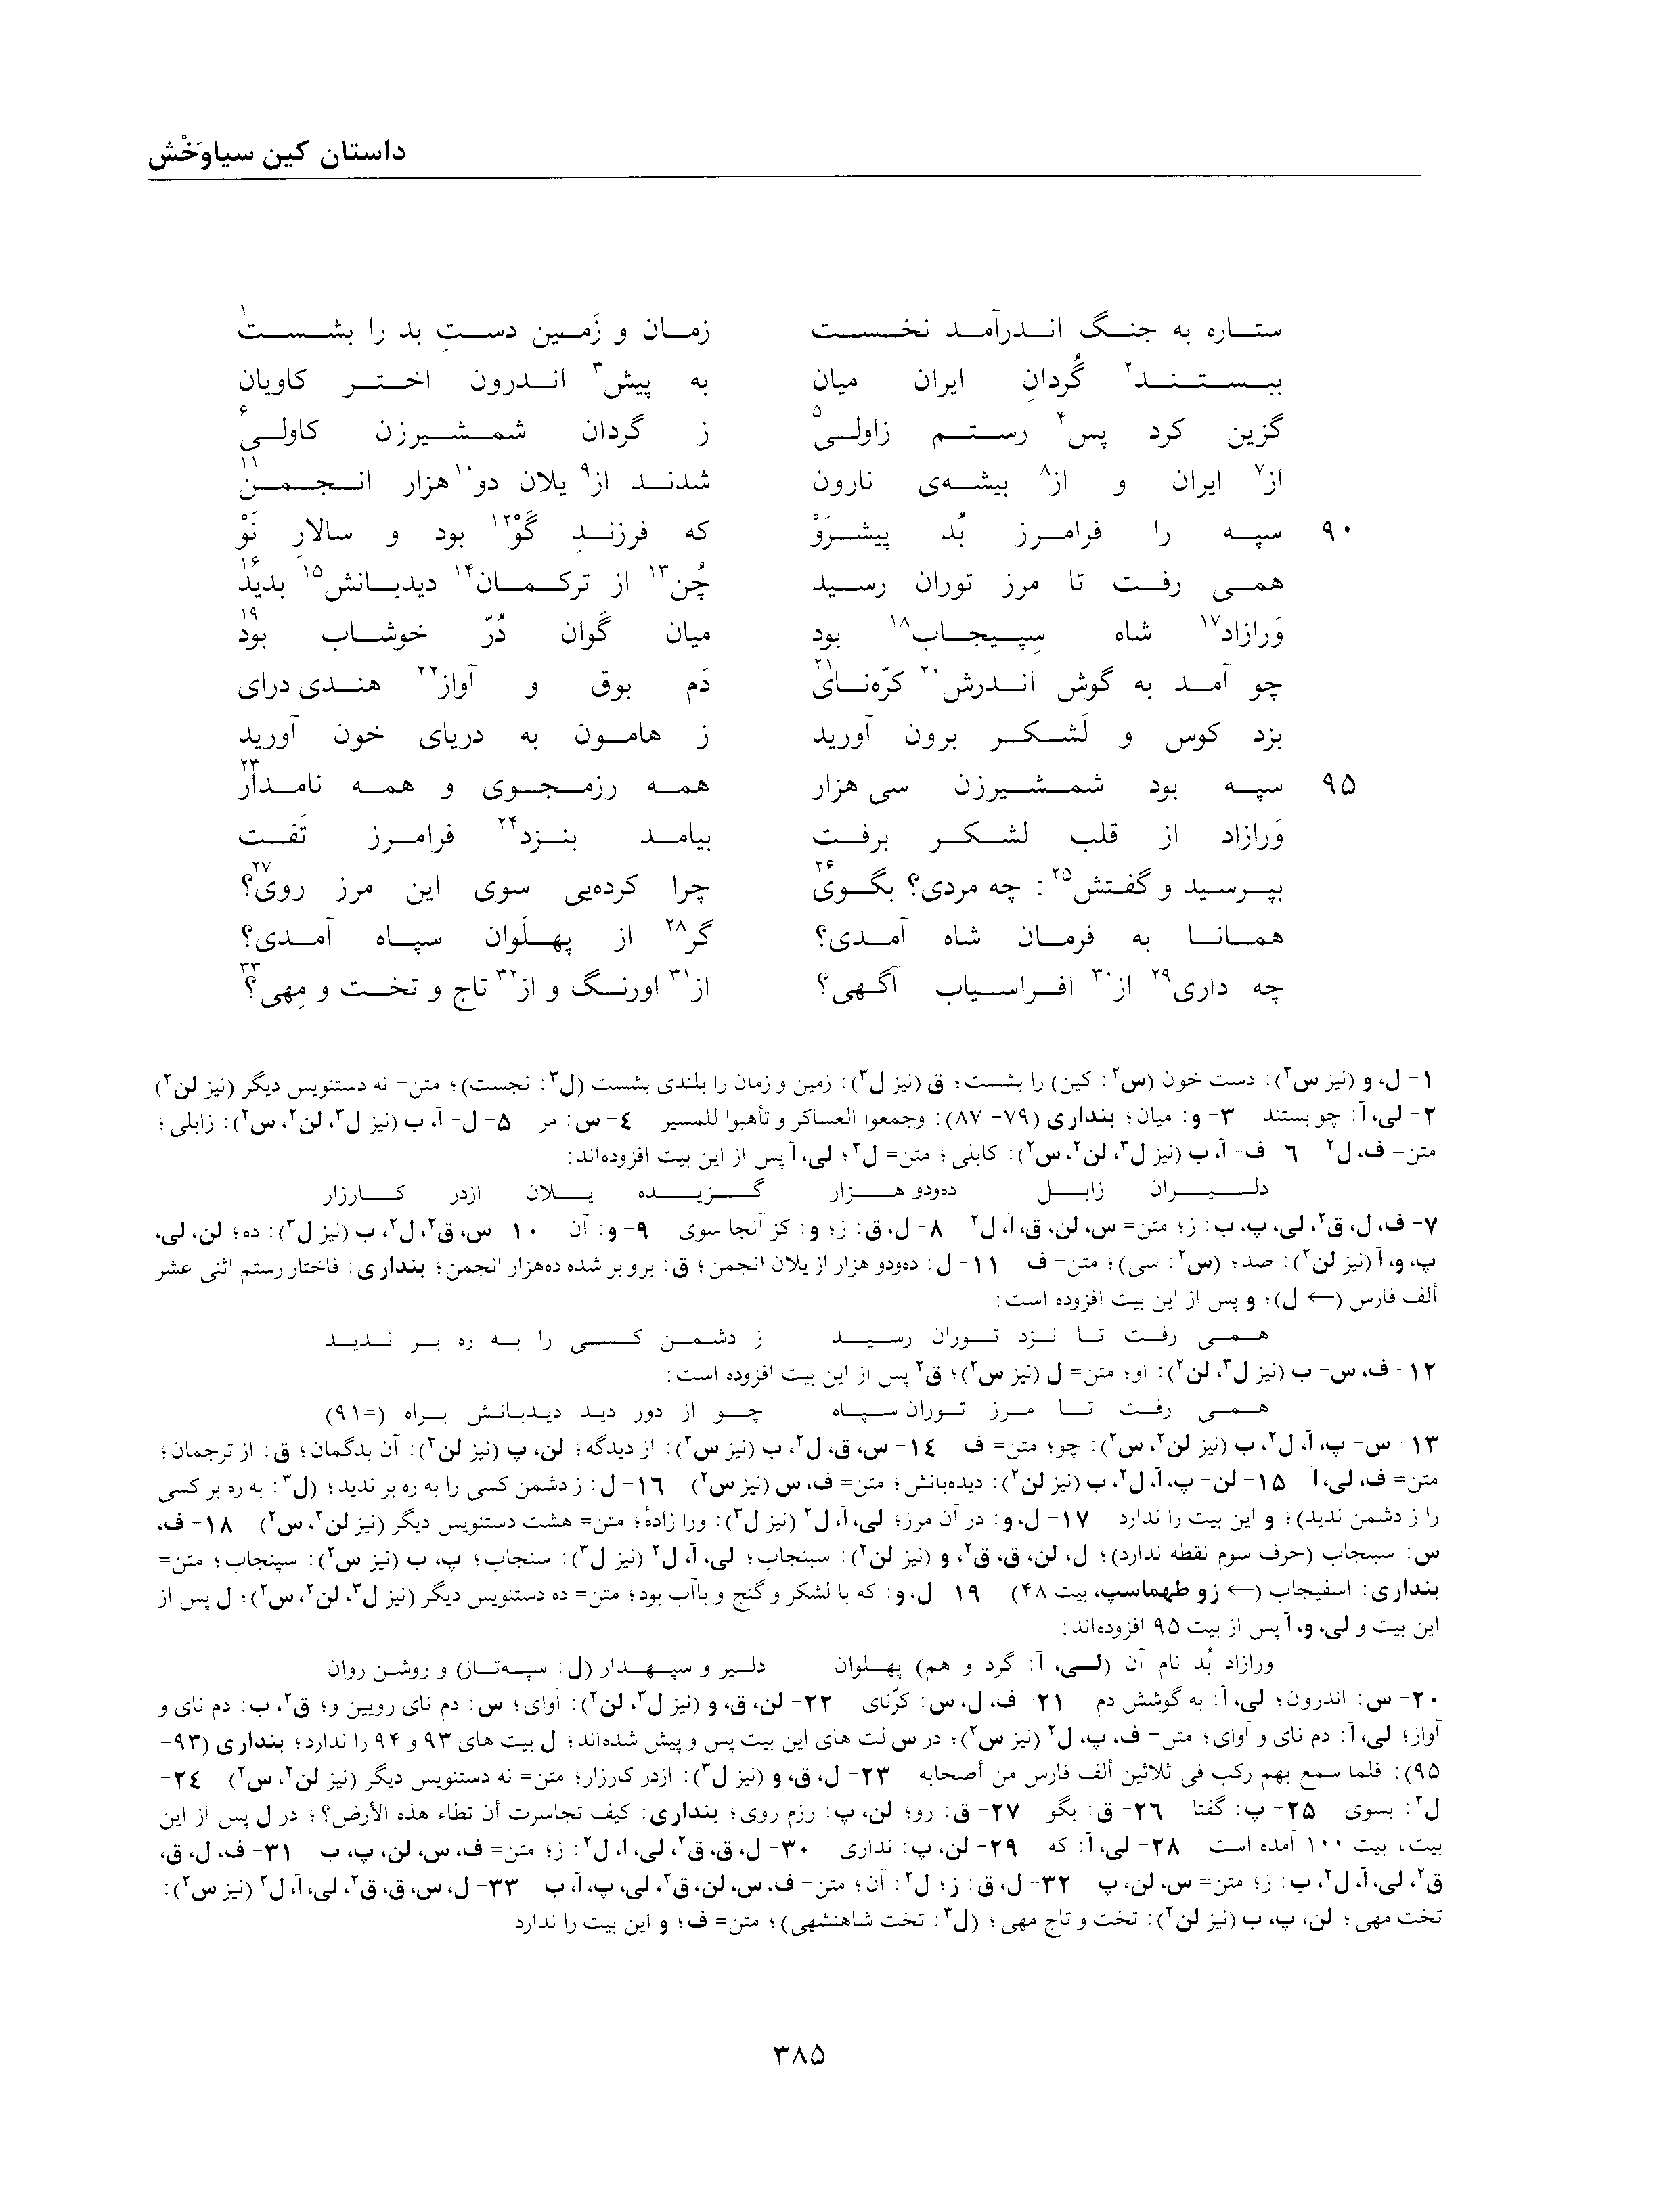 داستان کین سیاوَخْش
ستاره به جنگ اندرآمد نخست زمان و زَمین دستِ بد را بشست۱
ببستند۲ گُردانِ ایران میان به پیش۳ اندرون اختر کاویان
گزین کرد پس۴ رستم زاولی۵ ز گردان شمشیرزن کاولی۶
از۷ ایران و از۸ بیشه‌ی نارون شدند از۹ یلان دو۱۰ هزار انجمن۱۱
۹۰ سپه را فرامرز بُد پیشرَوْ که فرزندِ گَوْ۱۲ بود و سالارِ نَوْ
همی رفت تا مرز توران رسید چُن۱۳ از ترکمان۱۴ دیدبانش۱۵ بدید۱۶
وَرازاد۱۷ شاه سِپیجاب۱۸ بود میان گَوان دُرّ خوشاب بود۱۹
چو آمد به گوش اندرش۲۰ کرّه‌نای۲۱ دَم بوق و آواز۲۲ هندی درای
بزد کوس و لَشکر برون آورید ز هامون به دریای خون آورید
۹۵ سپه بود شمشیرزن سی هزار همه رزمجوی و همه نامدار۲۳
وَرازاد از قلب لشکر برفت بیامد بنزد۲۴ فرامرز تَفت
بپرسید و گفتش۲۵: چه مردی؟ بگوی۲۶ چرا کرده‌یی سوی این مرز روی؟۲۷
همانا به فرمان شاه آمدی؟ گر۲۸ از پهلَوان سپاه آمدی؟
چه داری۲۹ از۳۰ افراسیاب آگهی؟ از۳۱ اورنگ و از۳۲ تاج و تخت و مِهی؟۳۳
۱- ل، و (نیز س۲): دست خون (س۲: کین) را بشست؛ ق (نیز ل۳): زمین و زمان را بلندی بشست (ل۳: نجست)؛ متن= نه دستنویس دیگر (نیز لن۲)
۲- لی، آ: چو بستند ۳- و: میان؛ بنداری (۷۹- ۸۷): وجمعوا العساکر و تأهبوا للمسیر ۴- س: مر ۵- ل- آ، ب (نیز ل۳، لن۲، س۲): زابلی؛
متن= ف، ل۲ ۶- ف- آ، ب (نیز ل۳، لن۲، س۲): کابلی؛ متن= ل۲؛ لی، آ پس از این بیت افزوده‌اند:
دلیران زابل ده‌ودو هزار گزیده یلان ازدر کارزار
۷- ف، ل، ق۲، لی، پ، ب: ز؛ متن= س، لن، ق، آ، ل۲ ۸- ل، ق: ز؛ و: کز آنجا سوی ۹- و: آن ۱۰- س، ق۲، ل۲، ب (نیز ل۳): ده؛ لن، لی،
پ، و، آ (نیز لن۲): صد؛ (س۲: سی)؛ متن= ف ۱۱- ل: ده‌ودو هزار از یلان انجمن؛ ق: برو بر شده ده‌هزار انجمن؛ بنداری: فاختار رستم اثنی عشر
ألف فارس (← ل)؛ و پس از این بیت افزوده است:
همی رفت تا نزد توران رسید ز دشمن کسی را به ره بر ندید
۱۲- ف، س- ب (نیز ل۳، لن۲): او؛ متن= ل (نیز س۲)؛ ق۲ پس از این بیت افزوده است:
همی رفت تا مرز توران سپاه چو از دور دید دیدبانش براه (=۹۱)
۱۳- س- پ، آ، ل۲، ب (نیز لن۲، س۲): چو؛ متن= ف ۱۴- س، ق، ل۲، ب (نیز س۲): از دیدگه؛ لن، پ (نیز لن۲): آن بدگمان؛ ق: از ترجمان؛
متن= ف، لی، آ ۱۵- لن- پ، آ، ل۲، ب (نیز لن۲): دیده‌بانش؛ متن= ف، س (نیز س۲) ۱۶- ل: ز دشمن کسی را به ره بر ندید؛ (ل۳: به ره بر کسی
را ز دشمن ندید)؛ و این بیت را ندارد ۱۷- ل، و: در آن مرز؛ لی، آ، ل۲ (نیز ل۳): ورا زادهٔ؛ متن= هشت دستنویس دیگر (نیز لن۲، س۲) ۱۸- ف،
س: سبىجاب (حرف سوم نقطه ندارد)؛ ل، لن، ق، ق۲، و (نیز لن۲): سبنجاب؛ لی، آ، ل۲ (نیز ل۳): سنجاب؛ پ، ب (نیز س۲): سپنجاب؛ متن=
بنداری: اسفیجاب (← زو طهماسپ، بیت ۴۸) ۱۹- ل، و: که با لشکر و گنج و باآب بود؛ متن= ده دستنویس دیگر (نیز ل۳، لن۲، س۲)؛ ل پس از
این بیت و لی، و، آ پس از بیت ۹۵ افزوده‌اند:
ورازاد بُد نام آن (لی، آ: گرد و هم) پهلوان دلیر و سپهدار (ل: سپه‌تاز) و روشن روان
۲۰- س: اندرون؛ لی، آ: به گوشش دم ۲۱- ف، ل، س: کرّنای ۲۲- لن، ق، و (نیز ل۳، لن۲): آوای؛ س: دم نای رویین و؛ ق۲، ب: دم نای و
آواز؛ لی، آ: دم نای و آوای؛ متن= ف، پ، ل۲ (نیز س۲)؛ در س لت های این بیت پس و پیش شده‌اند؛ ل بیت های ۹۳ و ۹۴ را ندارد؛ بنداری (۹۳-
۹۵): فلما سمع بهم رکب فی ثلاثین ألف فارس من أصحابه ۲۳- ل، ق، و (نیز ل۳): ازدر کارزار؛ متن= نه دستنویس دیگر (نیز لن۲، س۲) ۲۴-
ل۲: بسوی ۲۵- پ: گفتا ۲۶- ق: بگو ۲۷- ق: رو؛ لن، پ: رزم روی؛ بنداری: کیف تجاسرت أن تطاء هذه الأرض؟؛ در ل پس از این
بیت، بیت ۱۰۰ آمده است ۲۸- لی، آ: که ۲۹- لن، پ: نداری ۳۰- ل، ق، ق۲، لی، آ، ل۲: ز؛ متن= ف، س، لن، پ، ب ۳۱- ف، ل، ق،
ق۲، لی، آ، ل۲، ب: ز؛ متن= س، لن، پ ۳۲- ل، ق: ز؛ ل۲: آن؛ متن= ف، س، لن، ق۲، لی، پ، آ، ب ۳۳- ل، س، ق، ق۲، لی، آ، ل۲ (نیز س۲):
تخت مهی؛ لن، پ، ب (نیز لن۲): تخت و تاج مهی؛ (ل۳: تخت شاهنشهی)؛ متن= ف؛ و این بیت را ندارد
۳۸۵